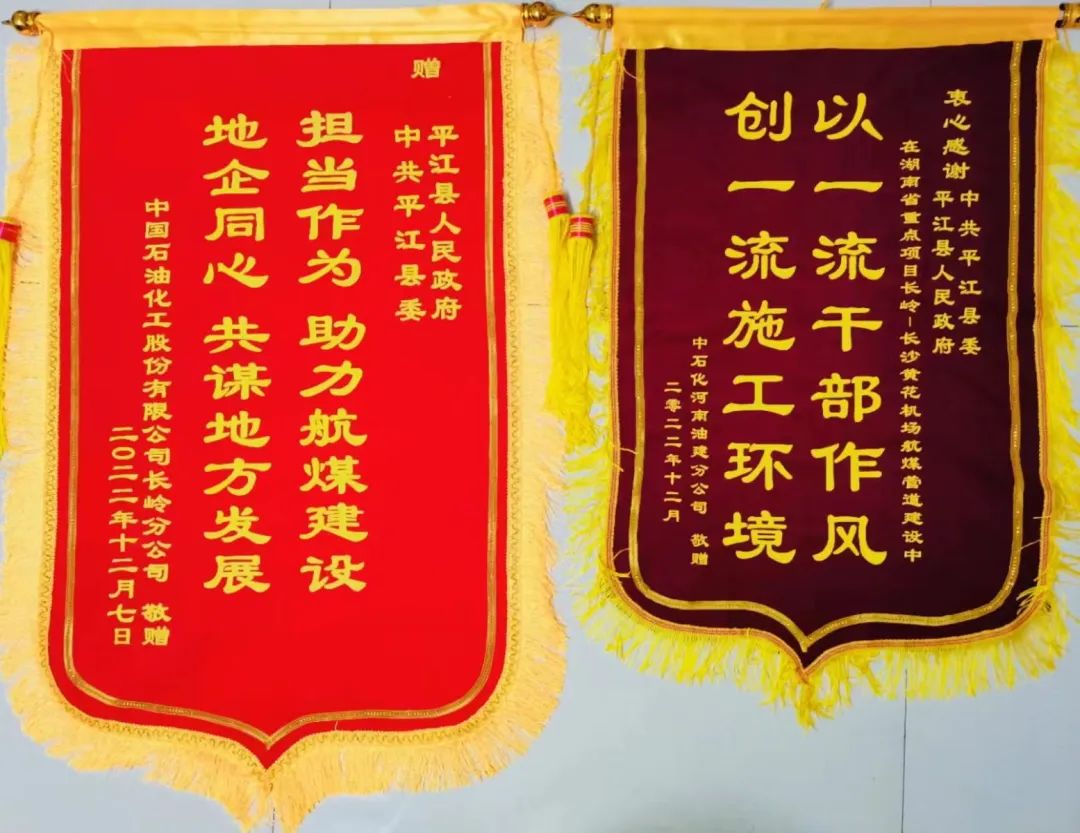 赠
平江县人民政府
中共平江县委
担当作为 助力航煤建设
地企同心 共谋地方发展
中国石油化工股份有限公司长岭分公司 敬赠
二〇二二年十二月七日
衷心感谢
中共平江县委
平江县人民政府
在湖南省重点项目长岭-长沙黄花机场航煤管道建设中
以一流干部作风
创一流施工环境
中石化河南油建分公司 敬赠
二零二二年十二月